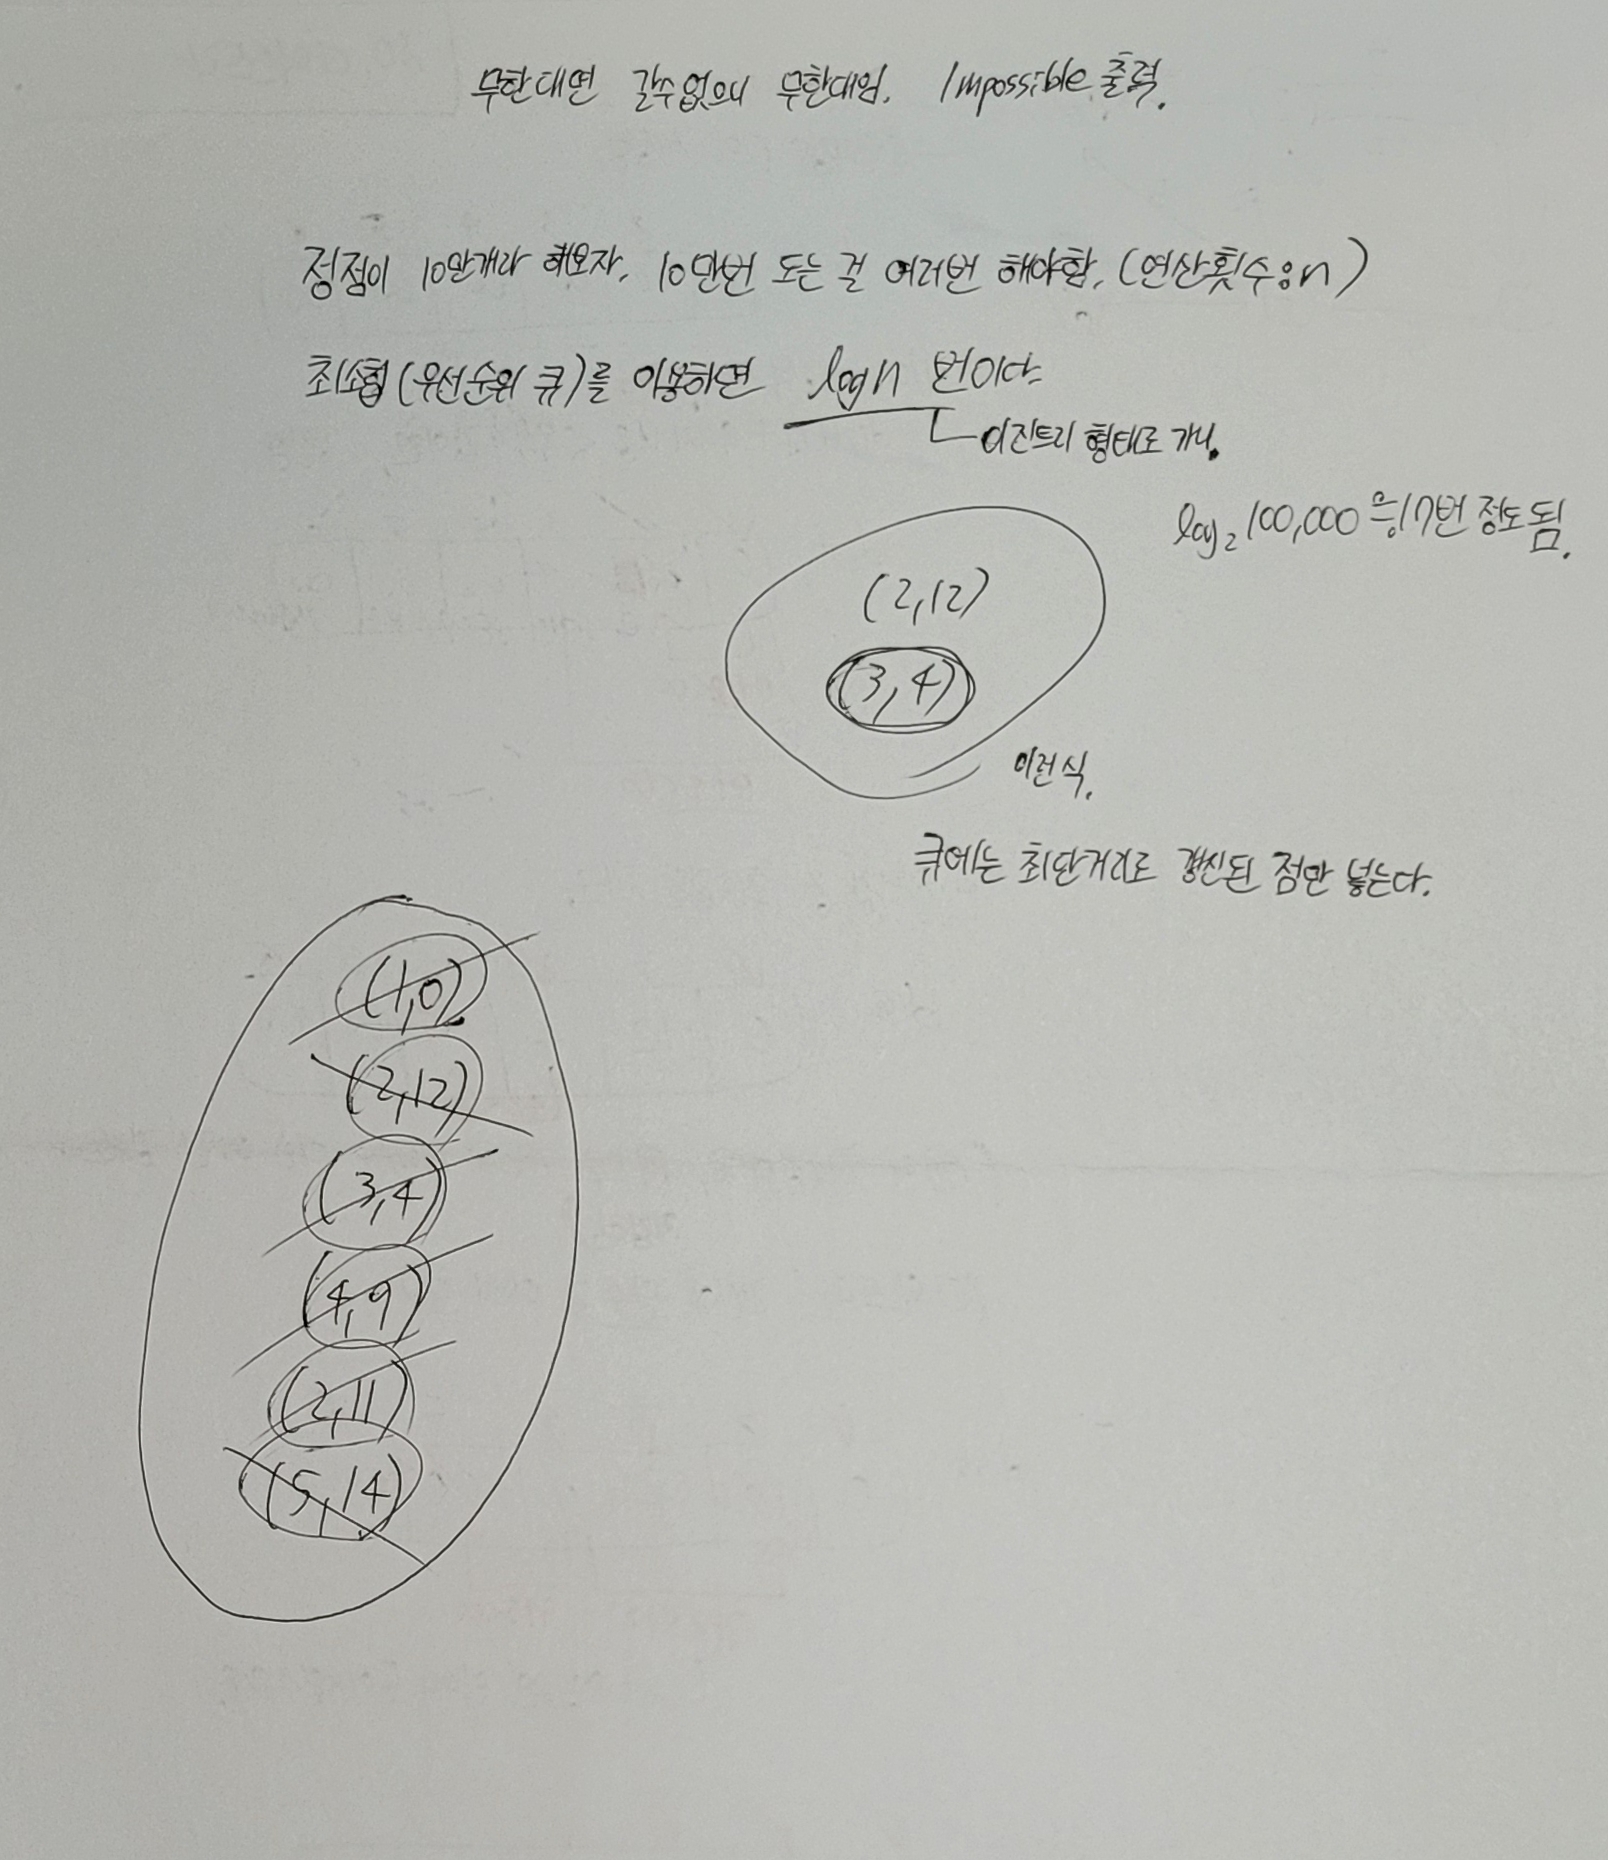 무한대면 갈수없으니 무한대임. Impossible 출력.
정점이 10만개라 해보자. 10만번 도는 걸 여러번 해야함. (연산횟수:n)
최소힙(우선순위 큐)를 이용하면 log n 번이다.
이진트리 형태로 가니.
log₂ 100,000 은 17번 정도 됨.
(2,12)
(3,4)
이런 식.
큐에는 최단거리로 갱신된 점만 넣는다.
(1,0)
(2,12)
(3,4)
(4,9)
(2,11)
(5,14)